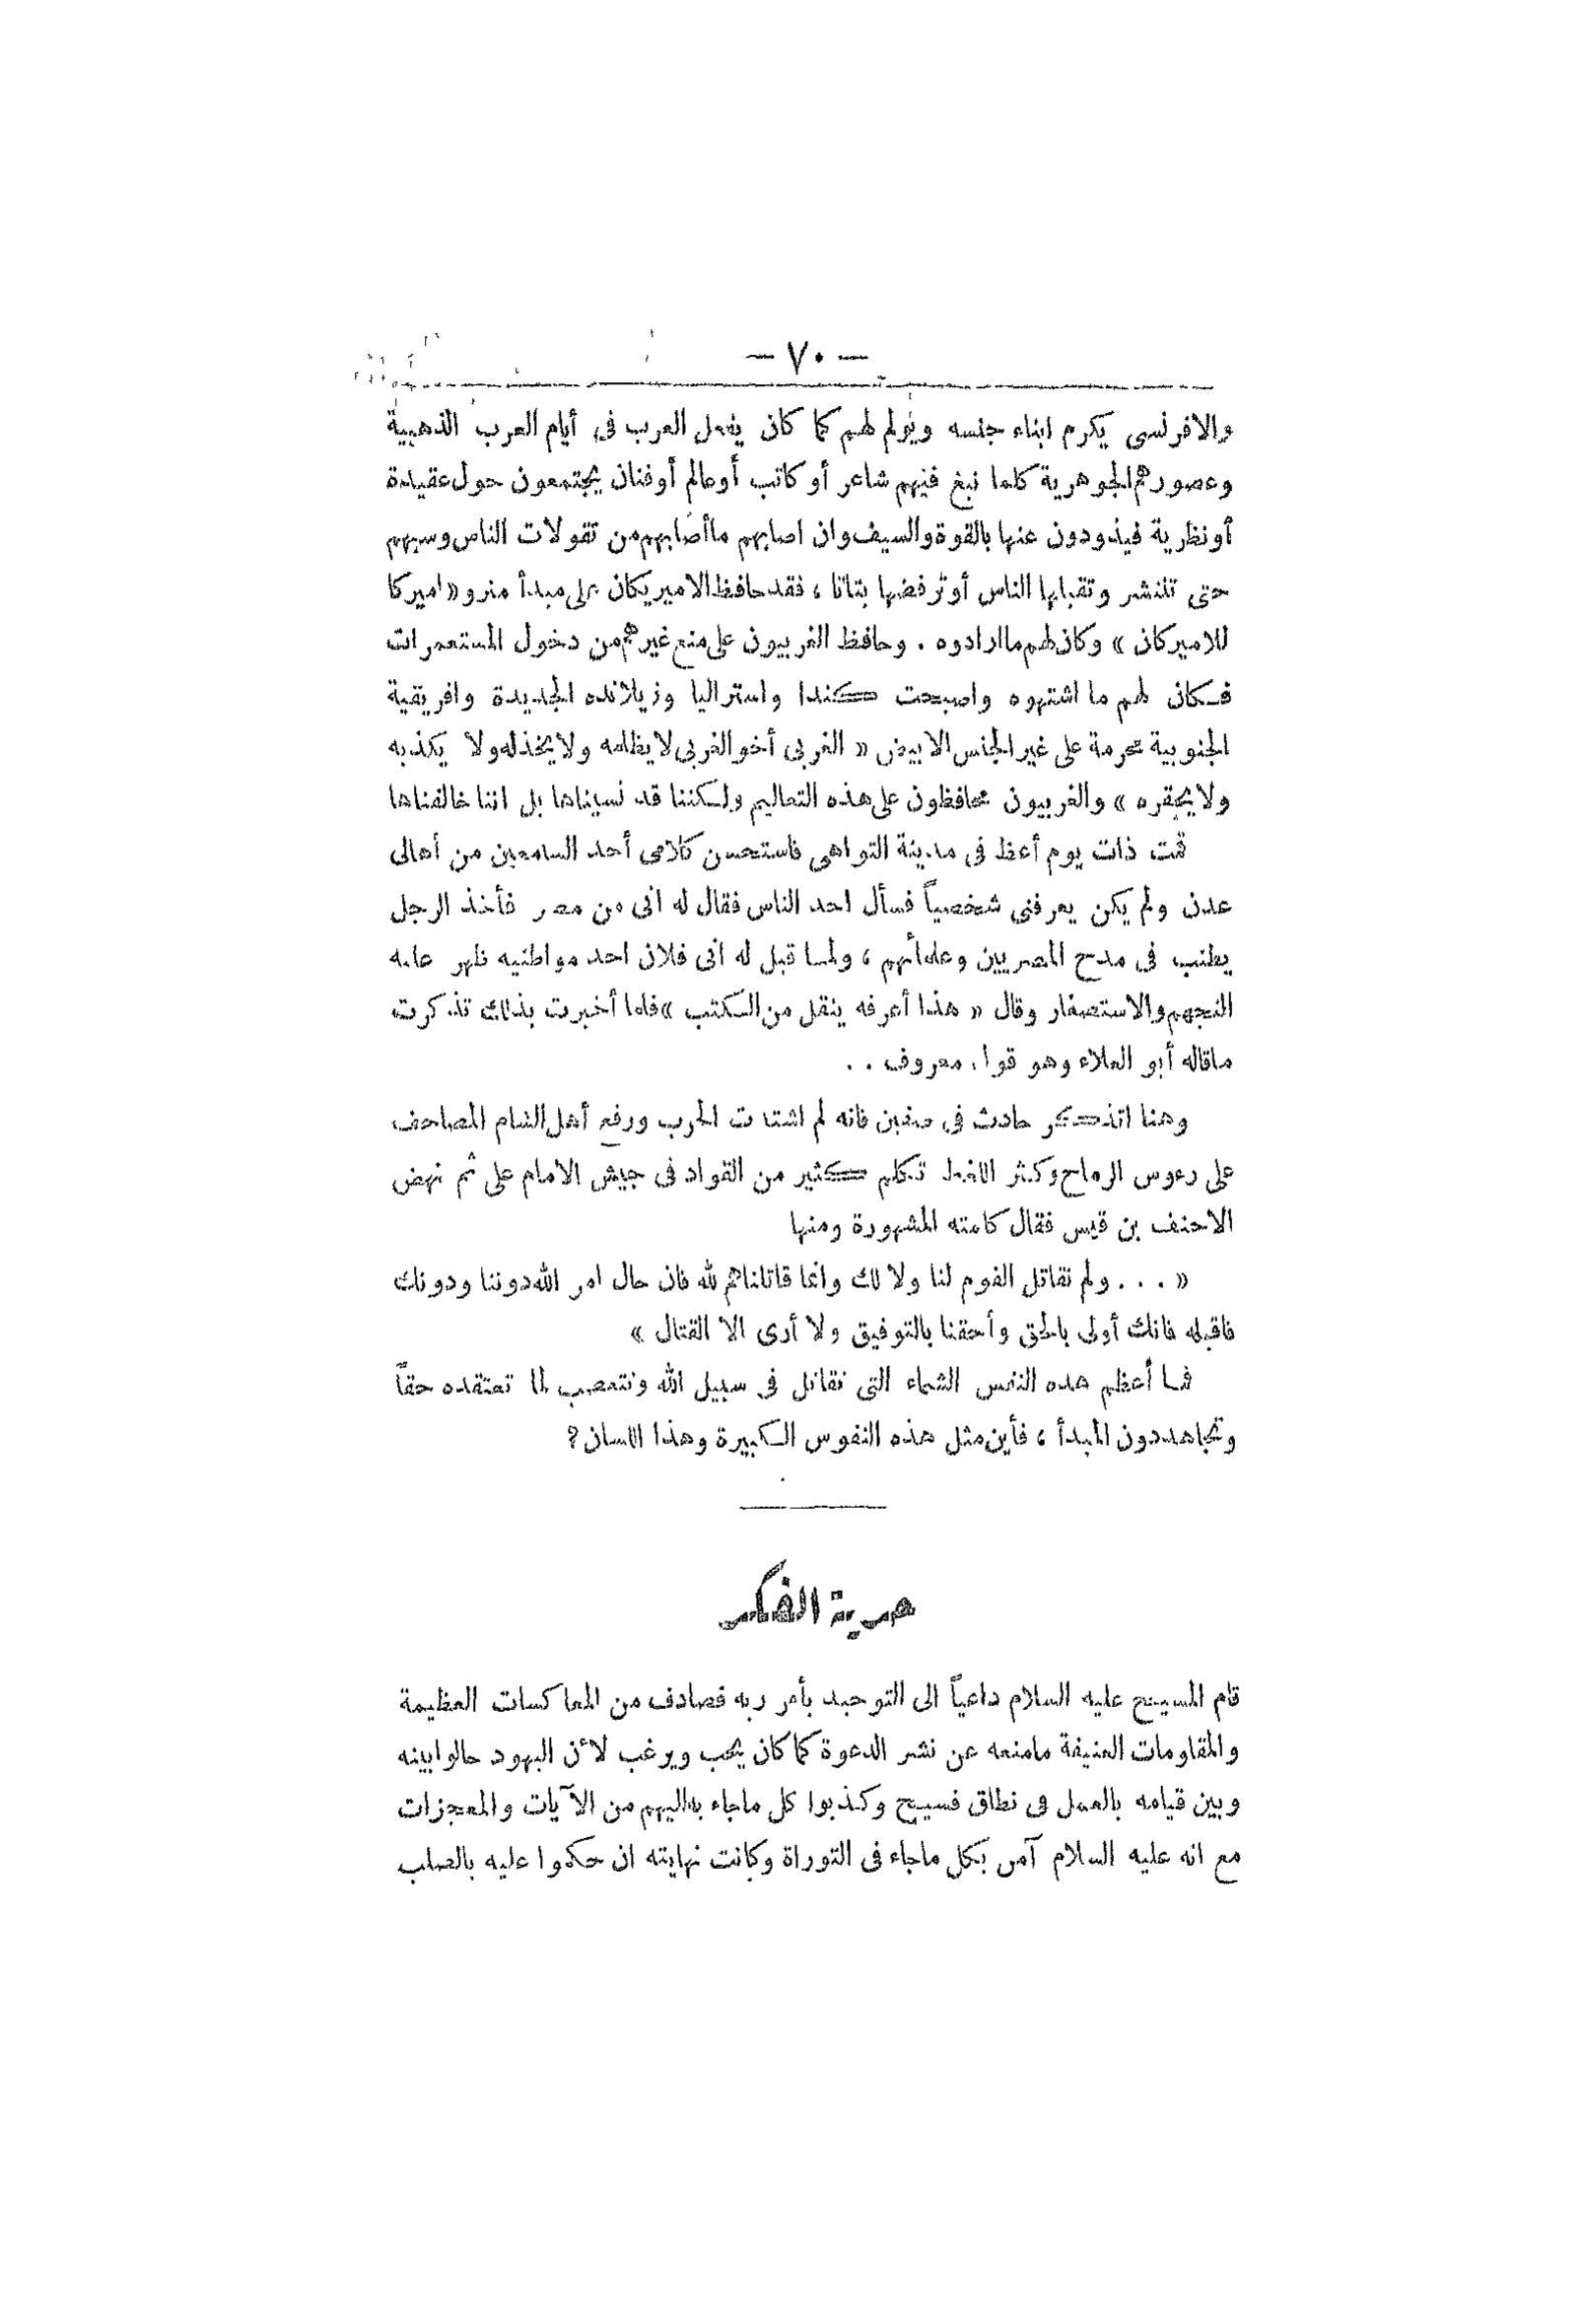 — ٧٠ —
والافرنسى يكرم ابناء جنسه ويولم لهم كما كان يفعل العرب فى أيام العرب الذهبية
وعصورهم الجوهرية كلما نبغ فيهم شاعر أو كاتب أو عالم أو فنان يجتمعون حول عقيدة
أو نظرية فيذودون عنها بالقوة والسيف وان اصابهم ما أصابهم من تقولات الناس وسبهم
حتى تنتشر وتقبلها الناس أو ترفضها بتاتا ، فقد حافظ الاميريكان على مبدأ منرو « اميركا
للاميركان » وكان لهم ما ارادوه . وحافظ الغربيون على منع غيرهم من دخول المستعمرات
فكان لهم ما اشتهوه واصبحت كندا واستراليا وزيلانده الجديدة وافريقية
الجنوبية محرمة على غير الجنس الابيض « الغربى أخو الغربى لا يظلمه ولا يخذله ولا يكذبه
ولا يحقره » والغربيون محافظون على هذه التعاليم ولكننا قد نسيناها بل اننا خالفناها
قمت ذات يوم أعظ فى مدينة التواهى فاستحسن كلامى أحد السامعين من أهالى
عدن ولم يكن يعرفنى شخصياً فسأل احد الناس فقال له انى من مصر فأخذ الرجل
يطنب فى مدح المصريين وعلمائهم ، ولما قيل له انى فلان احد مواطنيه ظهر عليه
التجهم والاستصغار وقال « هذا أعرفه ينقل من الكتب » فلما أخبرت بذلك تذكرت
ماقاله أبو العلاء وهو قول معروف . .
وهنا اتذكر حادث فى صفين فانه لم اشتدت الحرب ورفع أهل الشام المصاحف
على رءوس الرماح وكثر اللغط تكلم كثير من القواد فى جيش الامام على ثم نهض
الاحنف بن قيس فقال كلمته المشهورة ومنها
« . . . ولم نقاتل القوم لنا ولا لك وانما قاتلناهم لله فان حال امر الله دوننا ودونك
فاقبله فانك أولى بالحق وأحقنا بالتوفيق ولا أرى الا القتال »
فما أعظم هذه النفس الشماء التى تقاتل فى سبيل الله وتتعصب لما تعتقده حقاً
وتجاهد دون المبدأ ، فأين مثل هذه النفوس الكبيرة وهذا اللسان ؟
حرية الفكر
قام المسيح عليه السلام داعياً الى التوحيد بأمر ربه فصادف من المعاكسات العظيمة
والمقاومات العنيفة مامنعه عن نشر الدعوة كما كان يحب ويرغب لأن اليهود حالوا بينه
وبين قيامه بالعمل فى نطاق فسيح وكذبوا كل ماجاء به اليهم من الآيات والمعجزات
مع انه عليه السلام آمن بكل ماجاء فى التوراة وكانت نهايته ان حكموا عليه بالصلب